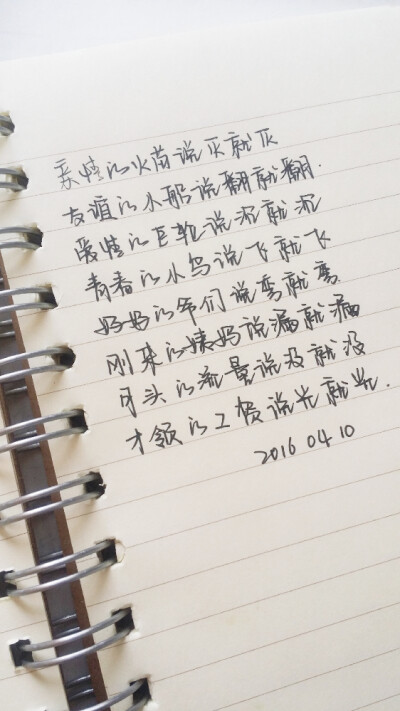 爱情的火苗说灭就灭
友谊的小船说翻就翻.
爱情的巨轮说沉就沉
青春的小鸟说飞就飞
妈妈的爷们说弯就弯
刚来的姨妈说漏就漏
月头的流量说没就没
才领的工资说光就光.
2016 04 10